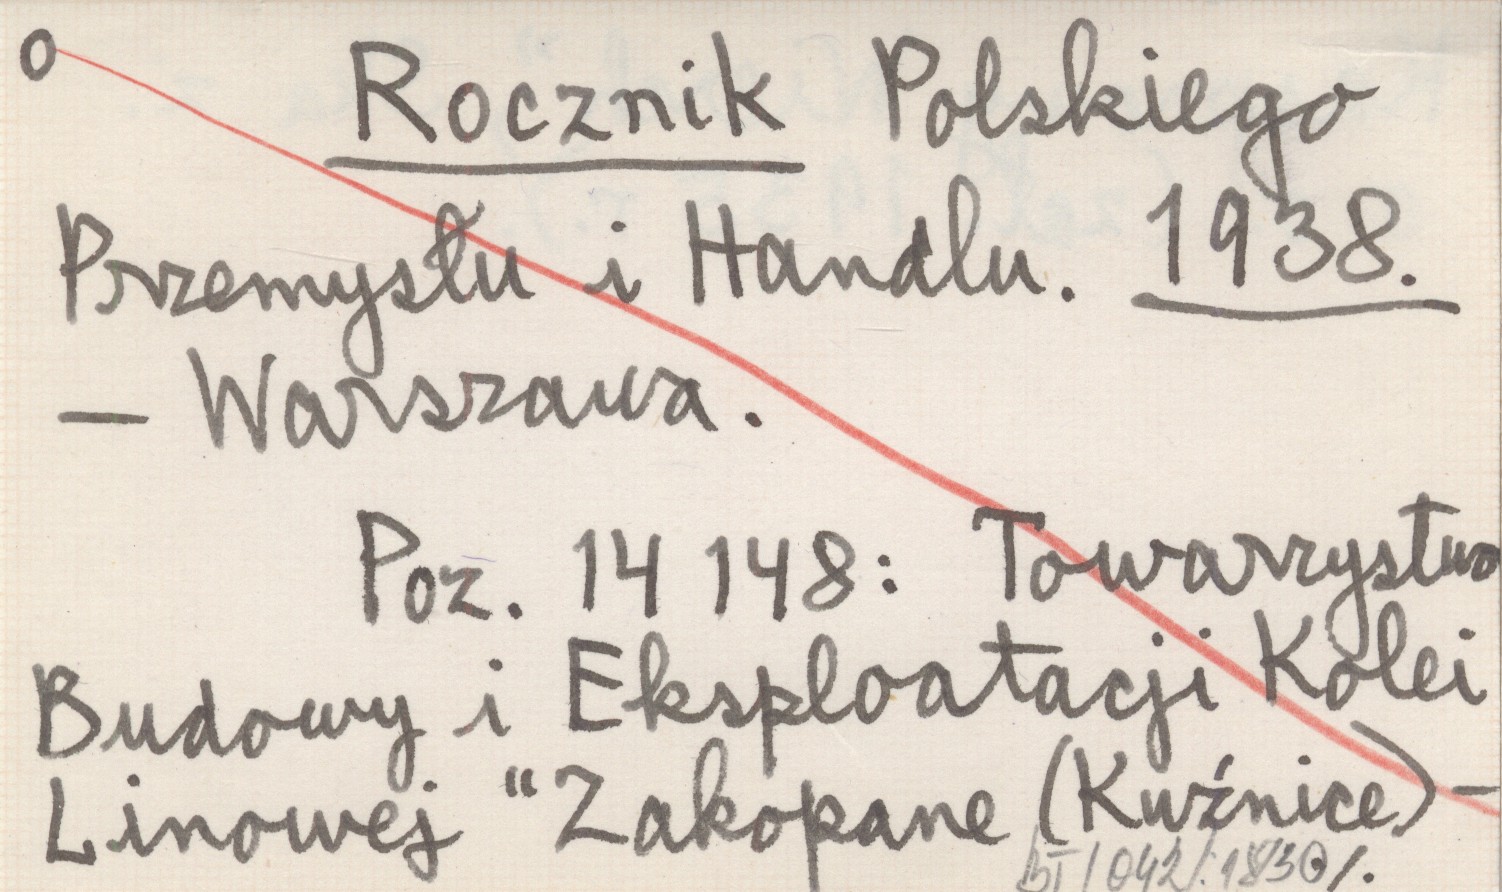 o Rocznik Polskiego
Przemysłu i Handlu. 1938.
— Warszawa.
Poz. 14 148: Towarzystwo
Budowy i Eksploatacji Kolei
Linowej "Zakopane (Kuźnice) —